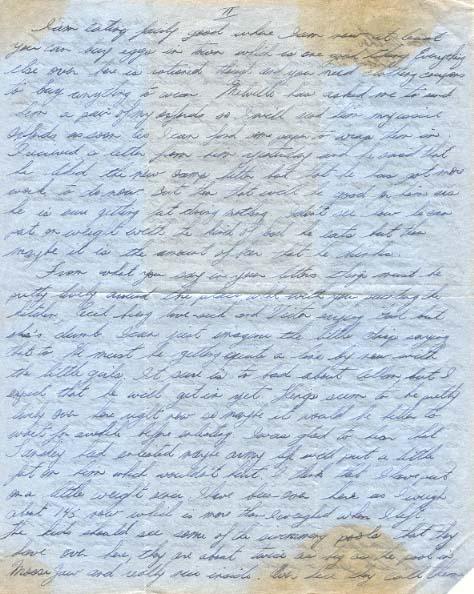 II
I am eating fairly good where I am now at least
you can buy eggs in town which is one good thing. Everything
else over here is rationed though and you need clothing coupons
to buy anything to wear. Melville has asked me to send
him a pair of my oxfords so I will send him my issue
oxfords as soon as I can find some paper to wrap them in.
I received a letter from him yesterday and he said that
he liked the new camp better but that he has got more
work to do now but that won't
he is sure getting fat doing nothing I don't see how he can
put on weight with the kind of food he eats but then
maybe it is the amount of beer that he drinks.
From what you say in your letters things must be
pretty lively around the place what with you painting the
kitchen Cecil being love-sick and Victor saying
she's dumb. I can just imagine the little chap saying
that so he must be getting quite a line by now with
the little girls. It sure is to bad about but I
expect that he will get in yet. Things seem to be pretty
lively over here right now so maybe it would be better to
wait for awhile before enlisting. I was glad to hear that
had enlisted maybe army life will put a little
fat on him which wouldn't hurt. I think that I have put
on a little weight since I have been over here as I weigh
about 143 now which is more than I weighed when I left.
The kids should see some of the swimming pools that they
have over here they are about twice as big as the pool in
Moose Jaw and really nice inside. Over here they call them